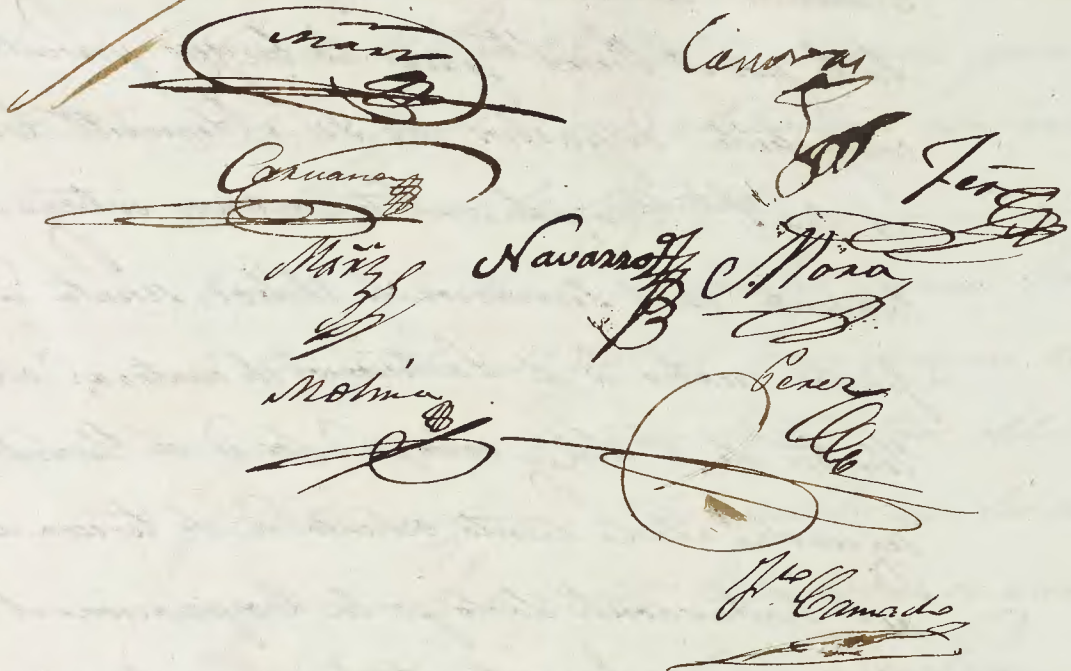 Canovas
Caruana
Fern
Mañz
Navarro
Mora
Molina
Perez
Camacho